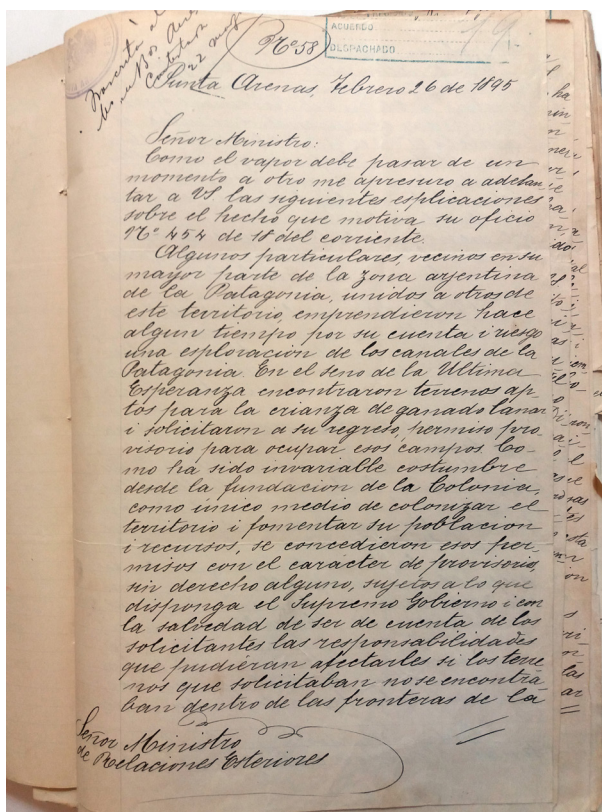 Nº 58
ACUERDO
DESPACHADO
Punta Arenas, Febrero 26 de 1895
Señor Ministro:
Como el vapor debe pasar de un
momento a otro me apresuro a adelan,
tar a VS las siguientes esplicaciones
sobre el hecho que motiva su oficio
Nº 454 de 18 del corriente.
Algunos particulares, vecinos en su
mayor parte de la zona arjentina
de la Patagonia, unidos a otros de
este territorio, emprendieron hace
algun tiempo por su cuenta i riesgo
una esploracion de los canales de la
Patagonia. En el seno de la Ultima
Esperanza encontraron terrenos ap-
tos para la crianza de ganado lanar
i solicitaron a su regreso, permiso pro-
visorio para ocupar esos campos. Co-
mo ha sido invariable costumbre
desde la fundacion de la Colonia,
como único medio de colonizar el
territorio i fomentar su poblacion
i recursos, se concedieron esos per-
misos con el caracter de provisorio,
sin derecho alguno, sujetos a lo que
disponga el Supremo Gobierno i con
la salvedad de ser de cuenta de los
solicitantes las responsabilidades
que pudieran afectarles si los terre
nos que solicitaban no se encontra
ban dentro de las fronteras de la
Señor Ministro
de Relaciones Esteriores